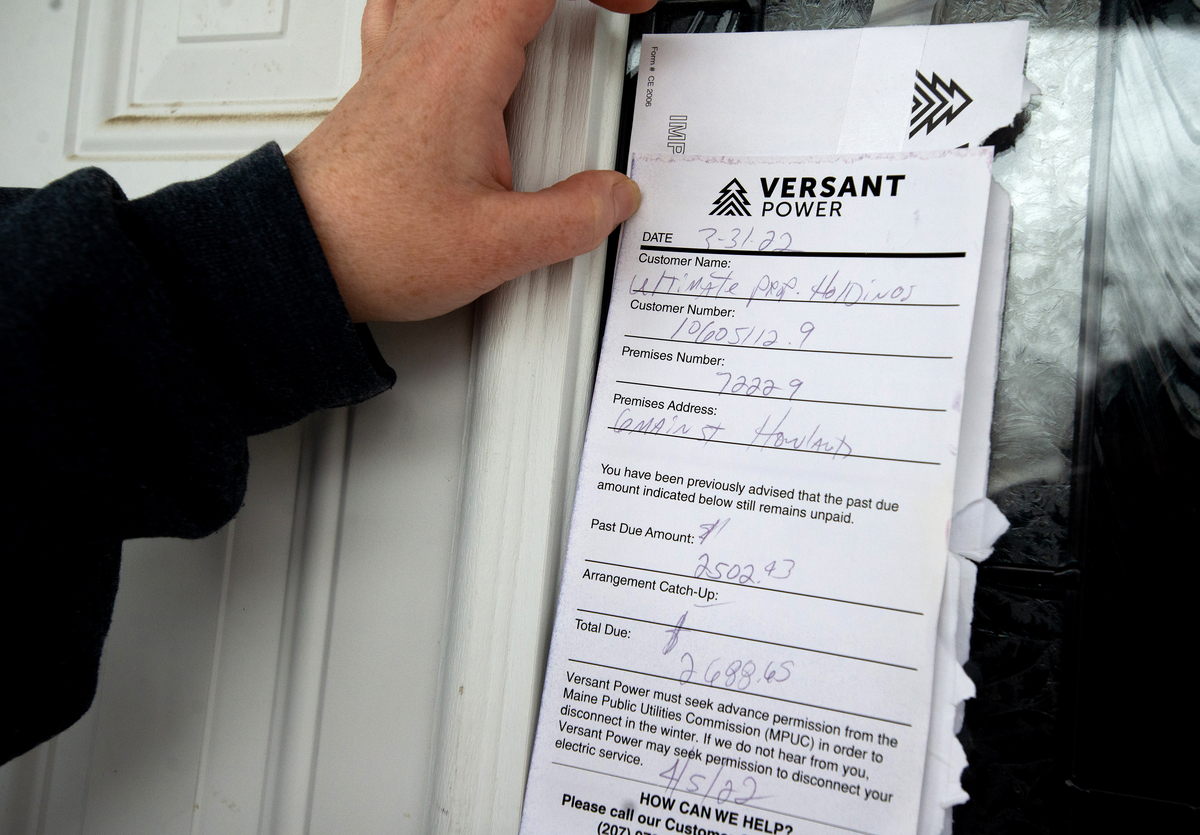 Form # CE 2006
IMP
VERSANT
POWER
DATE 3-31-22
Customer Name:
Ultimate Prop. Holdings
Customer Number:
10605112.9
Premises Number:
72229
Premises Address:
6 Main St Howland
You have been previously advised that the past due
amount indicated below still remains unpaid.
Past Due Amount: $
2502.43
Arrangement Catch-Up:
Total Due: $
2688.65
Versant Power must seek advance permission from the
Maine Public Utilities Commission (MPUC) in order to
disconnect in the winter. If we do not hear from you,
Versant Power may seek permission to disconnect your
electric service.
4/5/22
HOW CAN WE HELP?
Please call our Custome
(207) 97